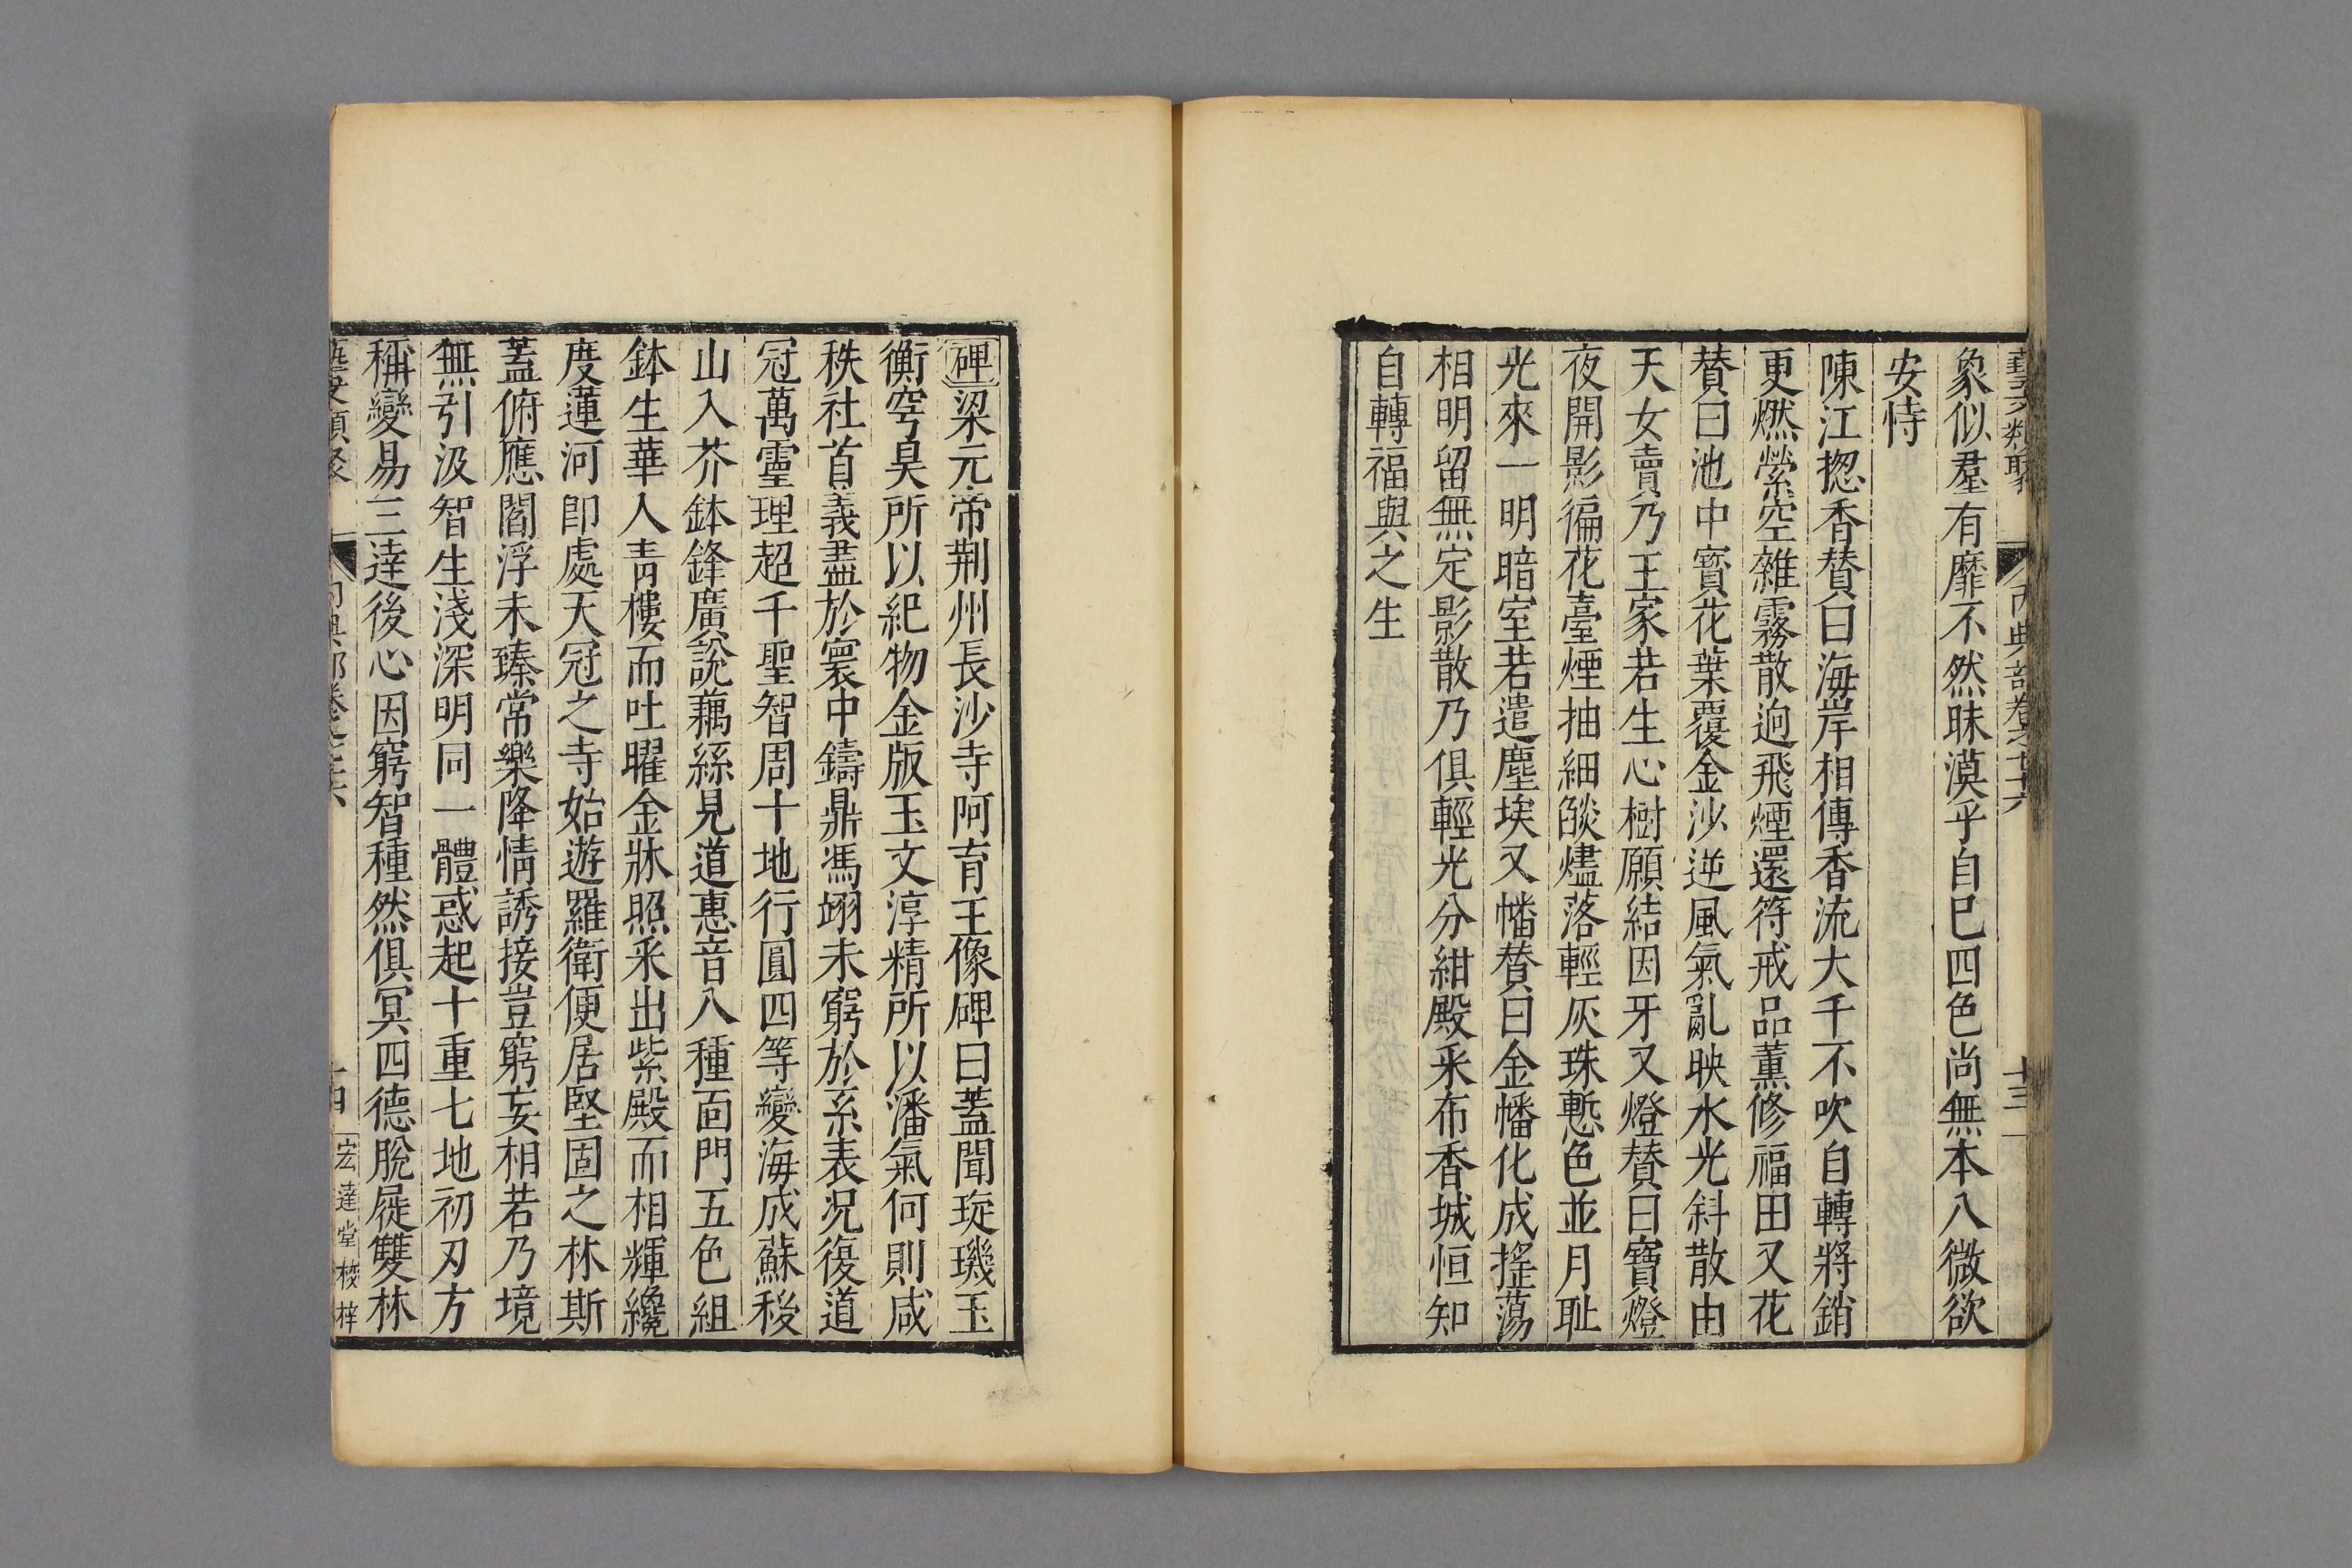 藝文類聚 內典部卷之七十六 十三
象似羣有靡不然昧漠乎自巳四色尚無本八微欲
安恃
陳江揔香賛曰海岸相傳香流大千不吹自轉將銷
更燃縈空雜霧散逈飛煙還符戒品薰修福田又花
賛曰池中寳花葉覆金沙逆風氣亂映水光斜散由
天女賣乃王家若生心樹願結因牙又燈賛曰寶燈
夜開影徧花臺煙抽細燄燼落輕灰珠慙色並月耻
光來一明暗室若遣塵埃又幡賛曰金幡化成搖蕩
相明留無定影散乃俱輕光分紺殿釆布香城恒知
自轉福與之生
碑梁元帝荆州長沙寺阿育王像碑曰蓋聞琁璣玉
衡穹昊所以紀物金版玉文淳精所以潘氣何則咸
秩社首義盡於寰中鑄鼎馮翊未窮於系表況復道
冠萬靈理超千聖智周十地行圓四等變海成蘇移
山入芥鉢鋒廣說藕絲見道惠音八種面門五色組
鉢生華入靑樓而吐曜金牀照釆出紫殿而相輝纔
度蓮河卽處天冠之寺始遊羅衛便居堅固之林斯
蓋俯應閻浮未臻常樂降情誘接豈窮妄相若乃境
無引汲智生淺深明同一體惑起十重七地初刃方
稱變易三達後心因窮智種然俱冥四德脫屣雙林
藝文類聚 內典部卷之七十六 十四 宏達堂校梓